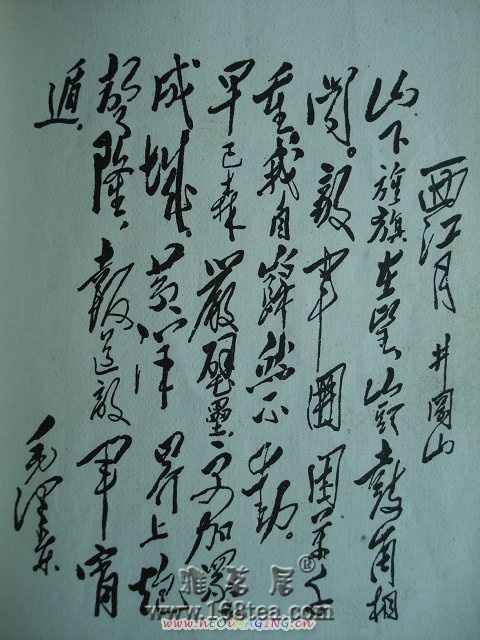 西江月 井冈山
山下旌旗在望山头鼓角相
闻。敌军围困万千
重我自岿然不动。
早已森严壁垒、更加众志
成城。黄洋界上炮
声隆、报道敌军宵
遁。
毛泽东
雅茗居®
www.198tea.com